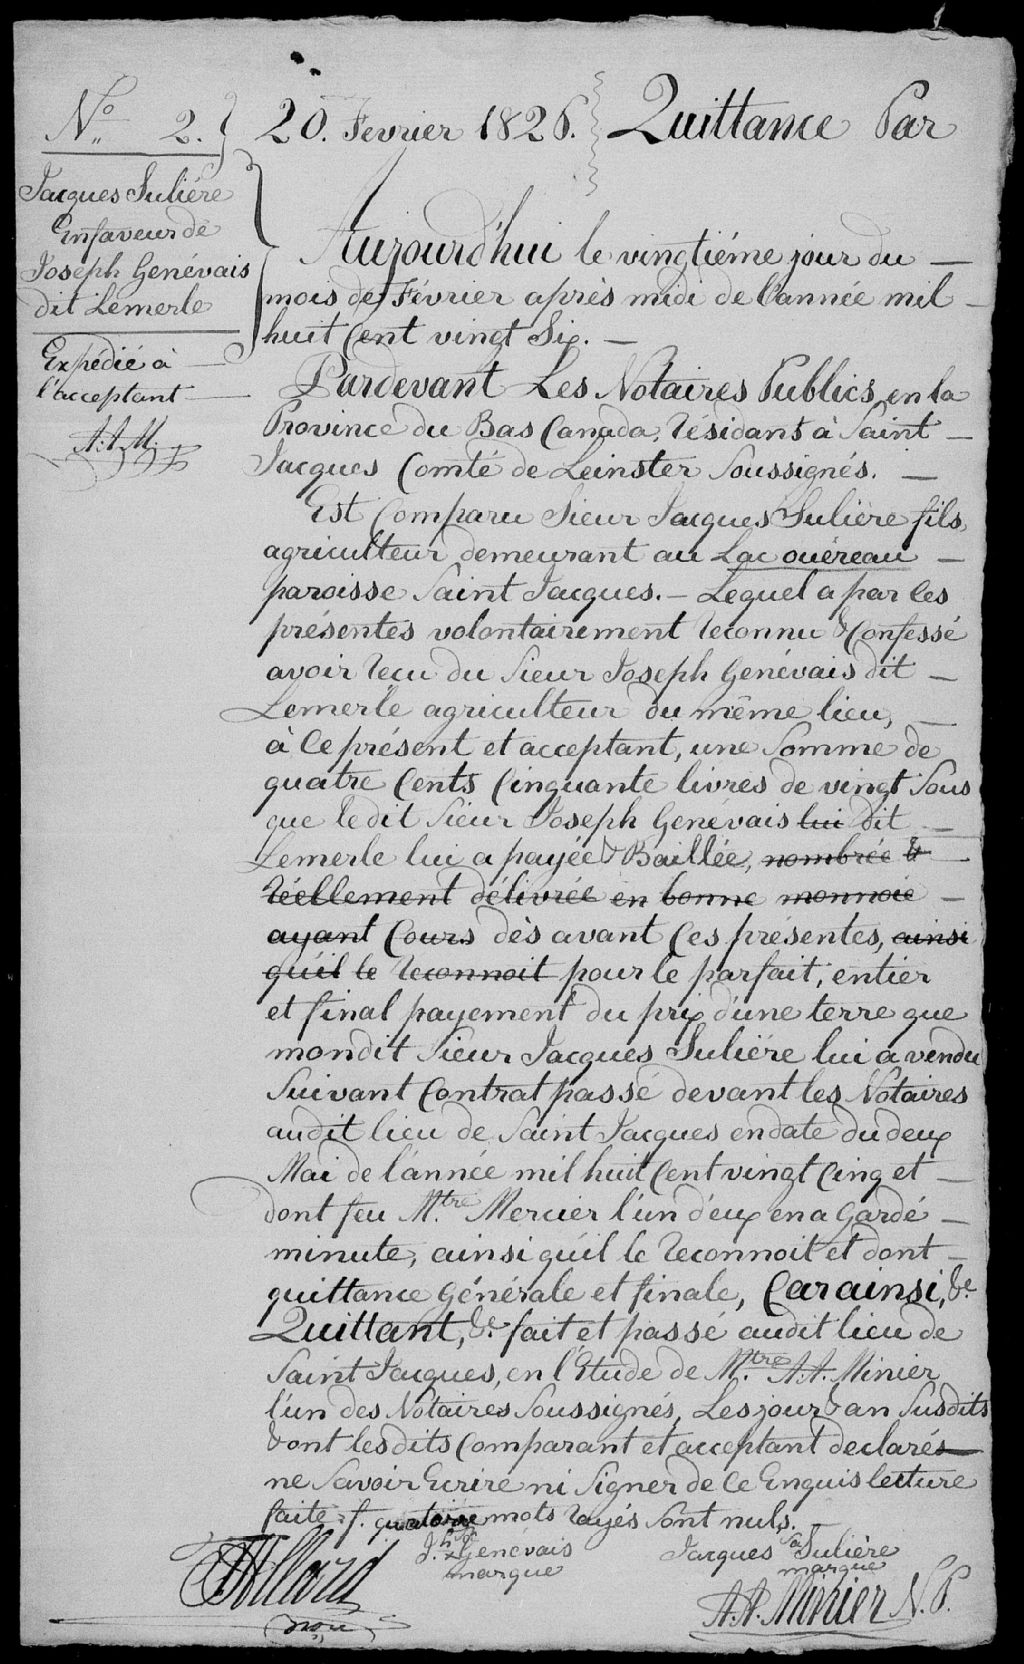 1
No 2. 20. Fevrier 1826. Quittance Par
Jacques Suliére
En faveur de
Joseph Genévais
dit Lemerle
Expédié à
l'acceptant
A. A. M.
Aujourd'hui le vingtiéme jour du
mois de Février aprés midi de l'année mil
huit Cent vingt Six.
Pardevant Les Notaires Publics en la
Province du Bas Canada, résidants à Saint
Jacques Comté de Leinster Soussignés.
Est Comparu Sieur Jacques Suliére fils,
agriculteur demeurant au Lac ouéreau
paroisse Saint Jacques. Lequel a par les
présentes volontairement reconnu & Confessé
avoir reçu du Sieur Joseph Genévais dit
Lemerle agriculteur du même lieu,
à Ce présent et acceptant, une Somme de
quatre Cents Cinquante livres de vingt Sous
que le dit Sieur Joseph Genévais lui dit
Lemerle lui a payée & Baillée, nombrée &
réellement délivrée en bonne monnoie
ayant Cours dès avant Ces présentes, ainsi
qu'il le reconnoit pour le parfait, entier
et final payement du prix d'une terre que
mondit Sieur Jacques Suliére lui a vendu
Suivant Contrat passé devant les Notaires
audit lieu de Saint Jacques en date du deux
Mai de l'année mil huit Cent vingt Cinq et
dont feu Mtre Mercier l'un d'eux en a Gardé
minute, ainsi qu'il le reconnoit et dont
quittance Générale et finale, Car ainsi, &c
Quittant, &c fait et passé audit lieu de
Saint Jacques, en l'Etude de Mtre A. A. Minier
l'un des Notaires Soussignés, Les jour & an Susdits
& ont les dits Comparant et acceptant declarés
ne Savoir Ecrire ni Signer de Ce Enquis lecture
faite. quatorze mots rayés Sont nuls.
Jh Sa x Genévais
marque
Jacques Sa Suliére
marque
A. A. Minier N. P.